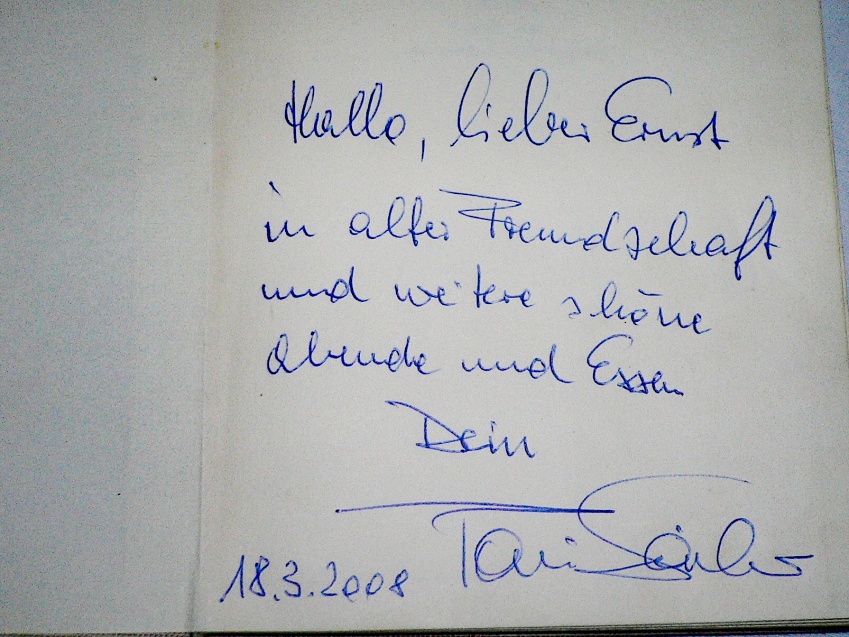 Hallo, lieber Ernst
in alter Freundschaft
und weitere schöne
Abende und Essen
Dein
Toni
18.3.2008